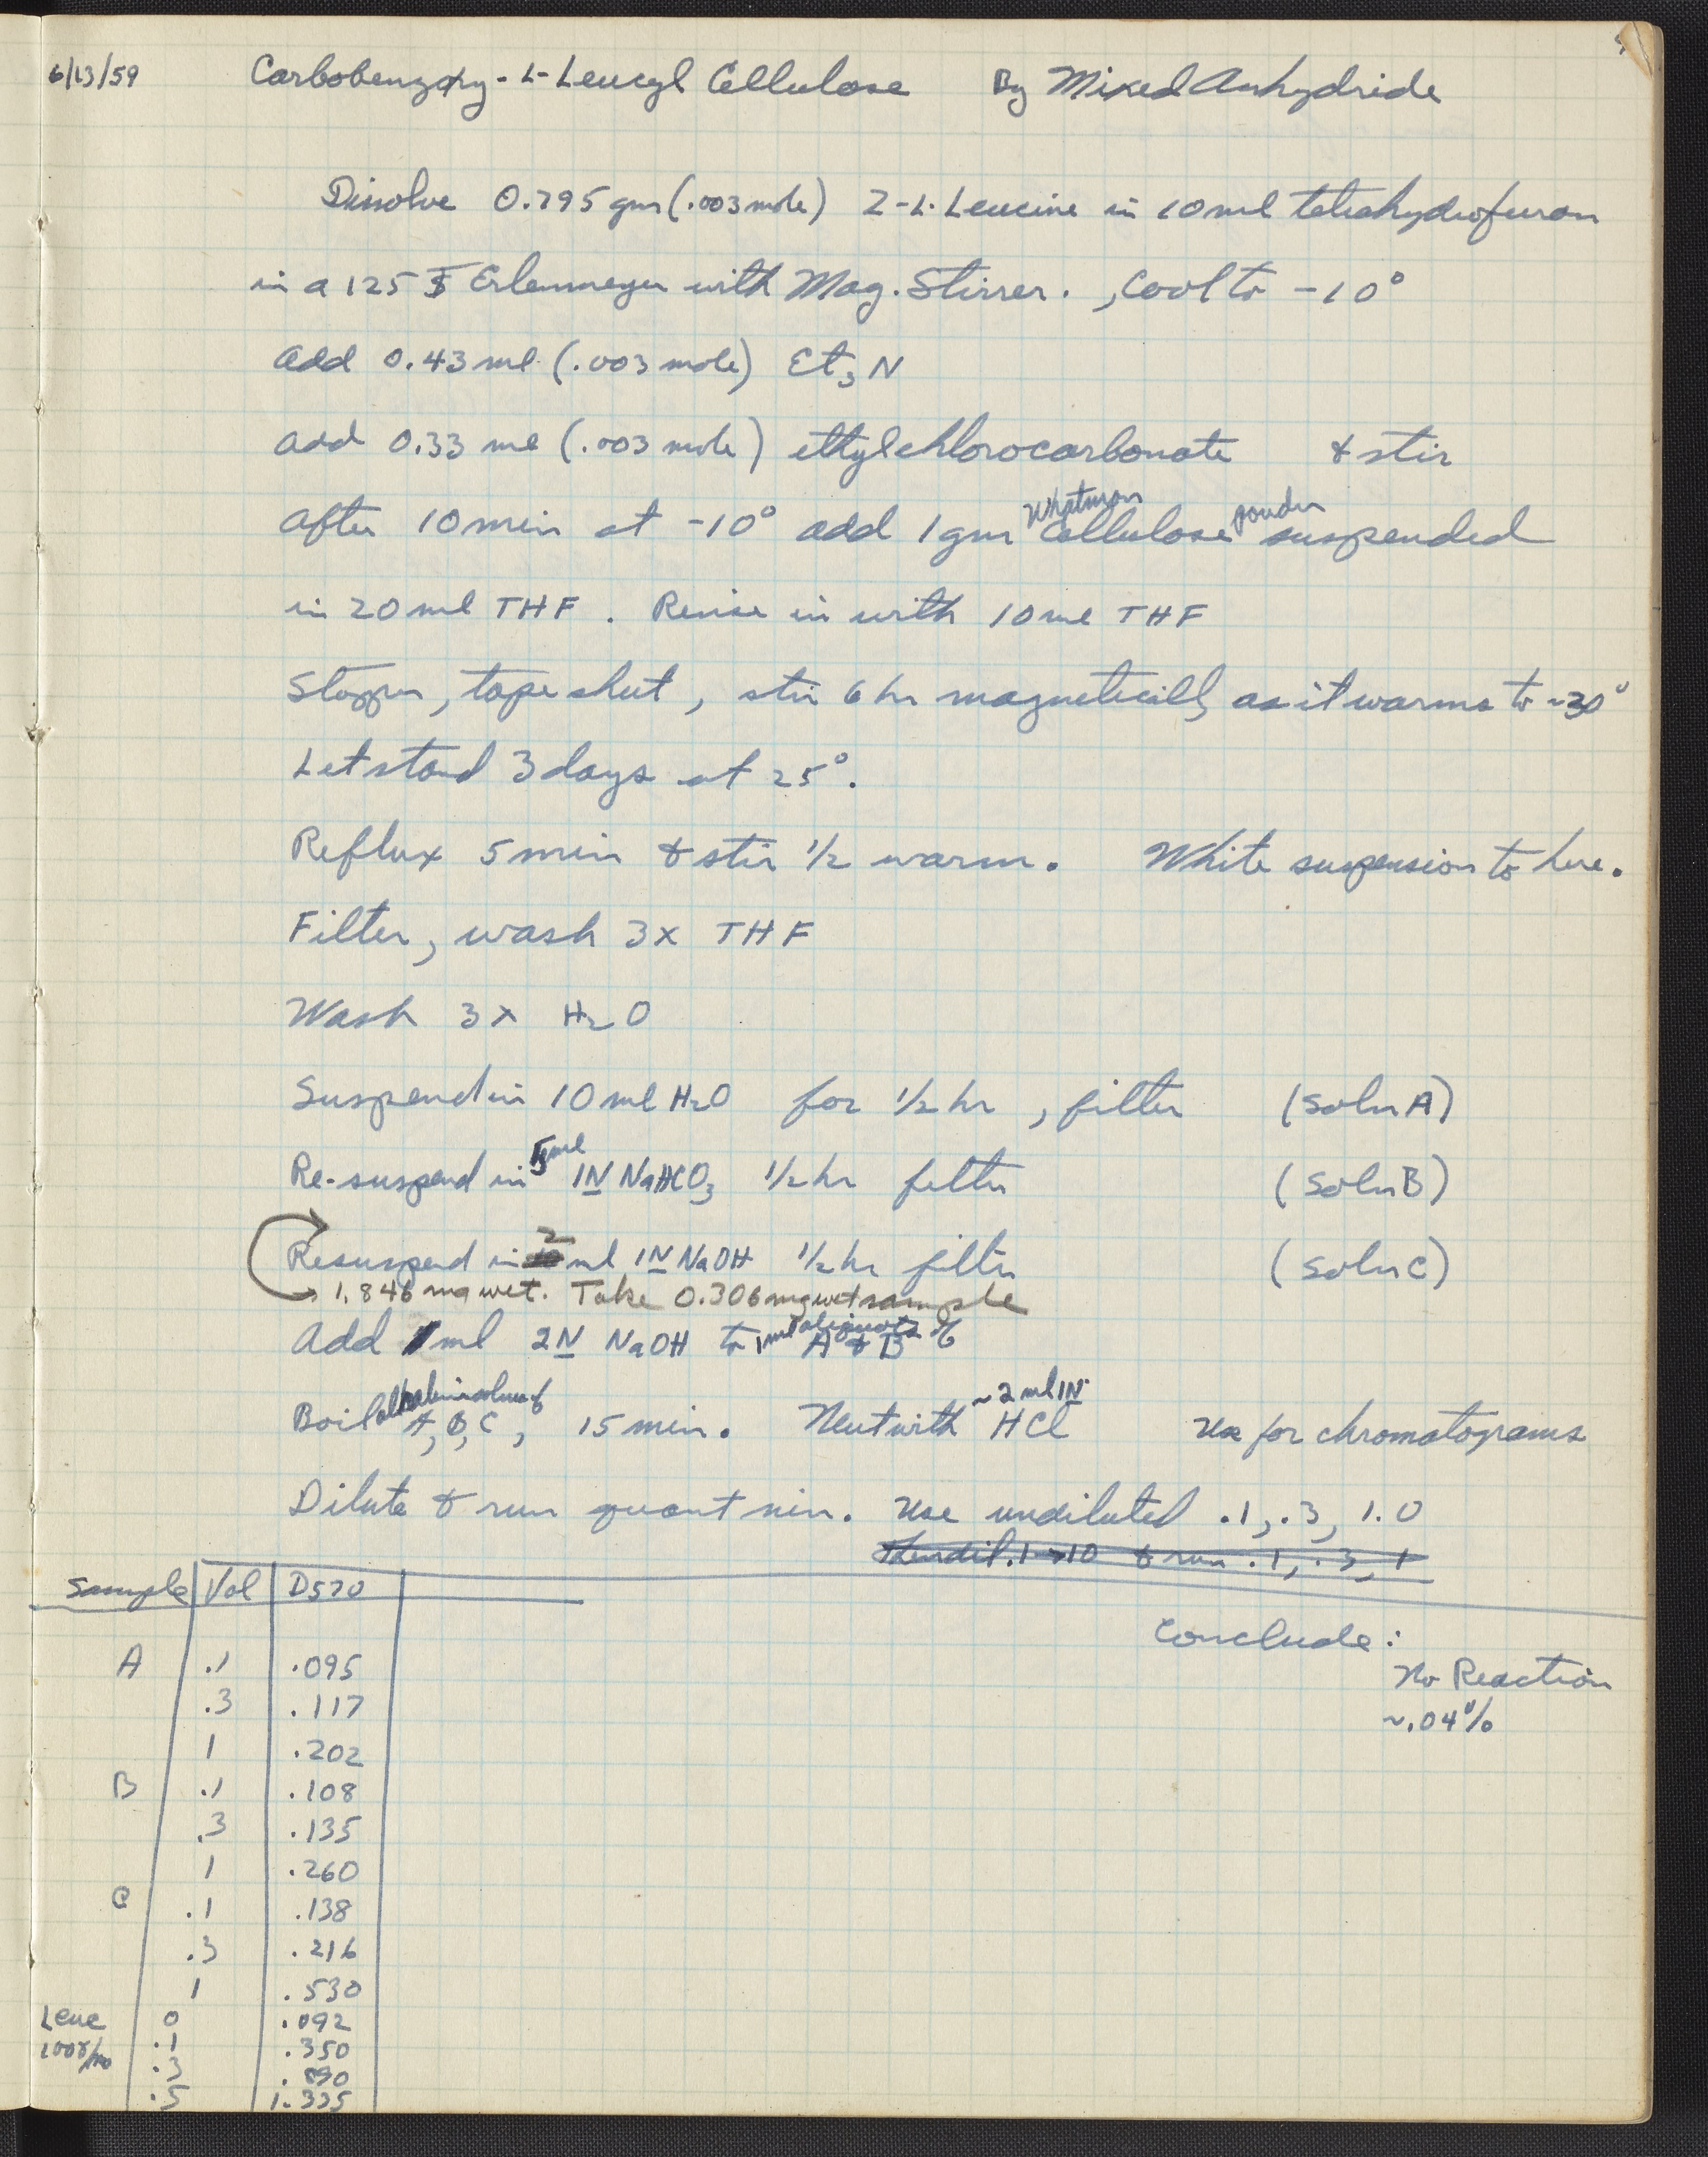 6/13/59 Carbobenzoxy-L-Leucyl Cellulose By Mixed Anhydride
Dissolve 0.795 gm (.003 mole) Z-L-Leucine in 10 ml tetrahydrofuran
in a 125 Erlenmeyer with Mag. Stirrer., Cool to -10°
Add 0.43 ml (.003 mole) Et3N
Add 0.33 ml (.003 mole) ethylchlorocarbonate & stir
After 10 min at -10° add 1 gm Whatman Cellulose powder suspended
in 20 ml THF. Rinse in with 10 ml THF
Stopper, tape shut, stir 6 hr magnetically as it warms to ~30°
Let stand 3 days at 25°.
Reflux 5 min & stir 1/2 warm. White suspension to here.
Filter, wash 3x THF
Wash 3x H2O
Suspend in 10 ml H2O for 1/2 hr, filter (Soln A)
Re-suspend in 5 ml 1N NaHCO3 1/2 hr filter (Soln B)
Resuspend in 2 ml 1N NaOH 1/2 hr filter (Soln C)
→ 1.846 mg wet. Take 0.306 mg wet sample
Add 1 ml 2N NaOH to 1 ml aliquots of A & B
Boil alkaline solns of A, B, C, 15 min. Neut with ~2 ml 1N HCl Use for chromatograms
Dilute & run quant nin. Use undiluted .1, .3, 1.0
Then dil. 1→10 & run .1, .3, 1
Sample Vol D570
Conclude:
A .1 .095 No Reaction
.3 .117 ~.04%
1 .202
B .1 .108
.3 .135
1 .260
C .1 .138
.3 .216
1 .530
Leuc 0 .092
100γ/ml .1 .350
.3 .890
.5 1.335